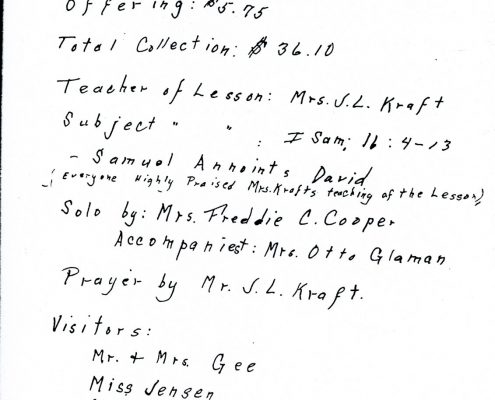 Offering: $5.75
Total Collection: $36.10
Teacher of Lesson: Mrs. J.L. Kraft
Subject " " : I Sam; 16: 4-13
- Samuel Annoints David
(Everyone Highly Praised Mrs. Krafts teaching of the Lesson)
Solo by: Mrs. Freddie C. Cooper
Accompaniest: Mrs. Otto Glaman
Prayer by Mr. J.L. Kraft.
Visitors:
Mr. + Mrs. Gee
Miss Jensen